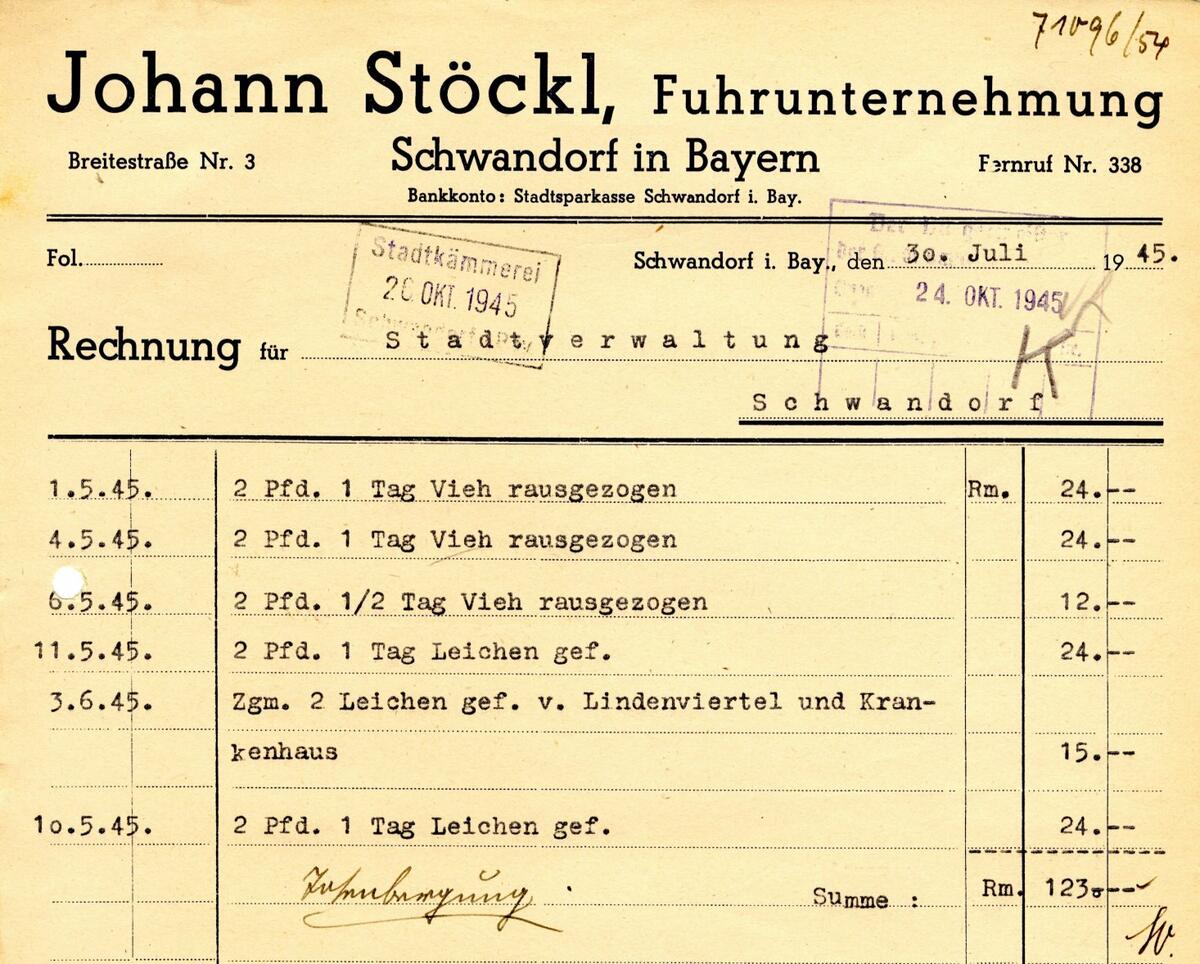 71096/54
Johann Stöckl, Fuhrunternehmung
Breitestraße Nr. 3 Schwandorf in Bayern Fernruf Nr. 338
Bankkonto: Stadtsparkasse Schwandorf i. Bay.
Fol.
Stadtkämmerei
26 OKT. 1945
Schwandorf
Schwandorf i. Bay., den 30. Juli 1945.
24. OKT. 1945
Rechnung für Stadtverwaltung
K
Schwandorf
1.5.45. 2 Pfd. 1 Tag Vieh rausgezogen Rm. 24.--
4.5.45. 2 Pfd. 1 Tag Vieh rausgezogen 24.--
6.5.45. 2 Pfd. 1/2 Tag Vieh rausgezogen 12.--
11.5.45. 2 Pfd. 1 Tag Leichen gef. 24.--
3.6.45. Zgm. 2 Leichen gef. v. Lindenviertel und Kran-
kenhaus 15.--
1o.5.45. 2 Pfd. 1 Tag Leichen gef. 24.--
Totenbergung Summe : Rm. 123.--